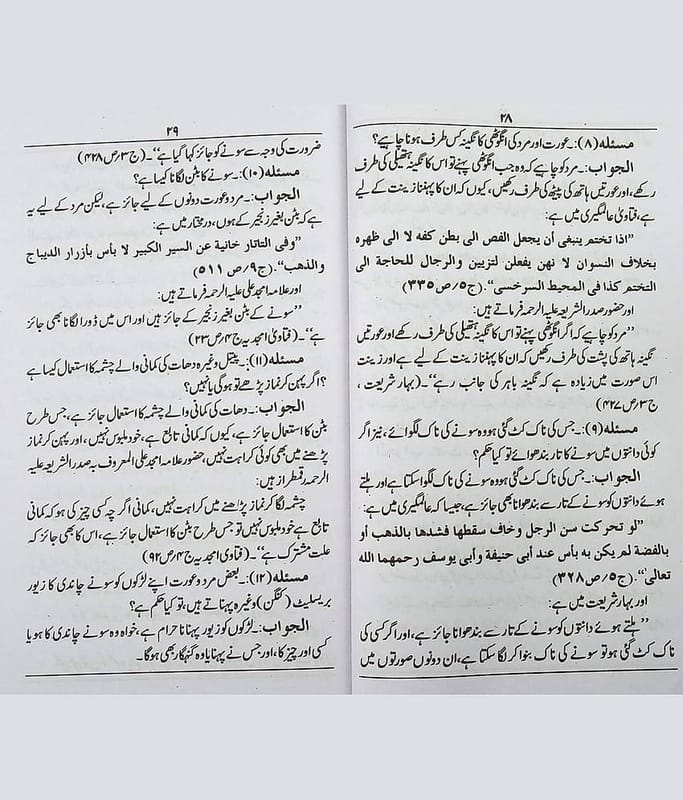 ۲۸
مسئلہ (۸):۔ عورت اور مرد کی انگوٹھی کا نگینہ کس طرف ہونا چاہیے؟
الجواب:۔ مرد کو چاہیے کہ وہ جب انگوٹھی پہنے تو اس کا نگینہ ہتھیلی کی طرف
رکھے، اور عورتیں ہاتھ کی پیٹھ کی طرف رکھیں، کیوں کہ ان کا پہننا زینت کے لیے
ہے، فتاویٰ عالمگیری میں ہے:
”اذا تختم ينبغى أن يجعل الفص الى بطن كفه لا الى ظهره
بخلاف النسوان لا نهن يفعلن لتزيين والرجال للحاجة الى
التختم كذا فى المحيط السرخسى“. (ج۵/ص ۳۳۵)
اور حضور صدر الشریعہ علیہ الرحمہ فرماتے ہیں:
”مرد کو چاہیے کہ اگر انگوٹھی پہنے تو اس کا نگینہ ہتھیلی کی طرف رکھے اور عورتیں
نگینہ ہاتھ کی پشت کی طرف رکھیں کہ ان کا پہننا زینت کے لیے ہے اور زینت
اس صورت میں زیادہ ہے کہ نگینہ باہر کی جانب رہے“۔ (بہار شریعت ،
ج۳/ص ۴۲۷)
مسئلہ (۹):۔ جس کی ناک کٹ گئی ہو وہ سونے کی ناک لگوائے، نیز اگر
کوئی دانتوں میں سونے کا تار بندھوائے تو کیا حکم؟
الجواب:۔ جس کی ناک کٹ گئی ہو وہ سونے کی ناک لگوا سکتا ہے اور ہلتے
ہوئے دانتوں کو سونے کے تار سے بندھوانا بھی جائز ہے، جیسا کہ عالمگیری میں ہے:
”لو تحركت سن الرجل وخاف سقطها فشدها بالذهب أو
بالفضة لم يكن به بأس عند أبى حنيفة وأبى يوسف رحمهما الله
تعالى“. (ج۵/ص ۳۲۸)
اور بہار شریعت میں ہے:
”ہلتے ہوئے دانتوں کو سونے کے تار سے بندھوانا جائز ہے، اور اگر کسی کی
ناک کٹ گئی ہو تو سونے کی ناک بنوا کر لگا سکتا ہے، ان دونوں صورتوں میں
۲۹
ضرورت کی وجہ سے سونے کو جائز کہا گیا ہے“۔ (ج۳/ص ۴۲۸)
مسئلہ (۱۰):۔ سونے کا بٹن لگانا کیسا ہے؟
الجواب:۔ مرد و عورت دونوں کے لیے جائز ہے، لیکن مرد کے لیے یہ
ہے کہ بٹن بغیر زنجیر کے ہوں، درمختار میں ہے:
”وفى التاتار خانية عن السير الكبير لا بأس بأزرار الديباج
والذهب“. (ج۹/ص ۵۱۱)
اور علامہ امجد علی علیہ الرحمہ فرماتے ہیں:
”سونے کے بٹن بغیر زنجیر کے جائز ہیں اور اس میں ڈورا لگانا بھی جائز
ہے“۔ (فتاویٰ امجدیہ ج۴/ص ۲۳)
مسئلہ (۱۱):۔ پیتل وغیرہ دھات کی کمانی والے چشمہ کا استعمال کیسا ہے
؟ اگر پہن کر نماز پڑھے تو ہوگی یا نہیں؟
الجواب:۔ دھات کی کمانی والے چشمہ کا استعمال جائز ہے، جس طرح
بٹن کا استعمال جائز ہے، کیوں کہ کمانی تابع ہے، خود ملبوس نہیں، اور پہن کر نماز
پڑھنے میں بھی کوئی کراہت نہیں، حضور علامہ امجد علی المعروف بہ صدر الشریعہ علیہ
الرحمہ رقمطراز ہیں:
چشمہ لگا کر نماز پڑھنے میں کراہت نہیں، کمانی اگر چہ کسی چیز کی ہو کہ کمانی
تابع ہے خود ملبوس نہیں تو جس طرح بٹن کا استعمال جائز ہے، اس کا بھی جائز کہ
علت مشترک ہے“۔ (فتاویٰ امجدیہ ج۴/ص ۹۲)
مسئلہ (۱۲):۔ بعض مرد و عورت اپنے لڑکوں کو سونے چاندی کا زیور
بریسلیٹ (کنگن) وغیرہ پہناتے ہیں، تو کیا حکم ہے؟
الجواب:۔ لڑکوں کو زیور پہنانا حرام ہے، خواہ وہ سونے چاندی کا ہو یا
کسی اور چیز کا، اور جس نے پہنایا وہ گنہگار بھی ہوگا۔